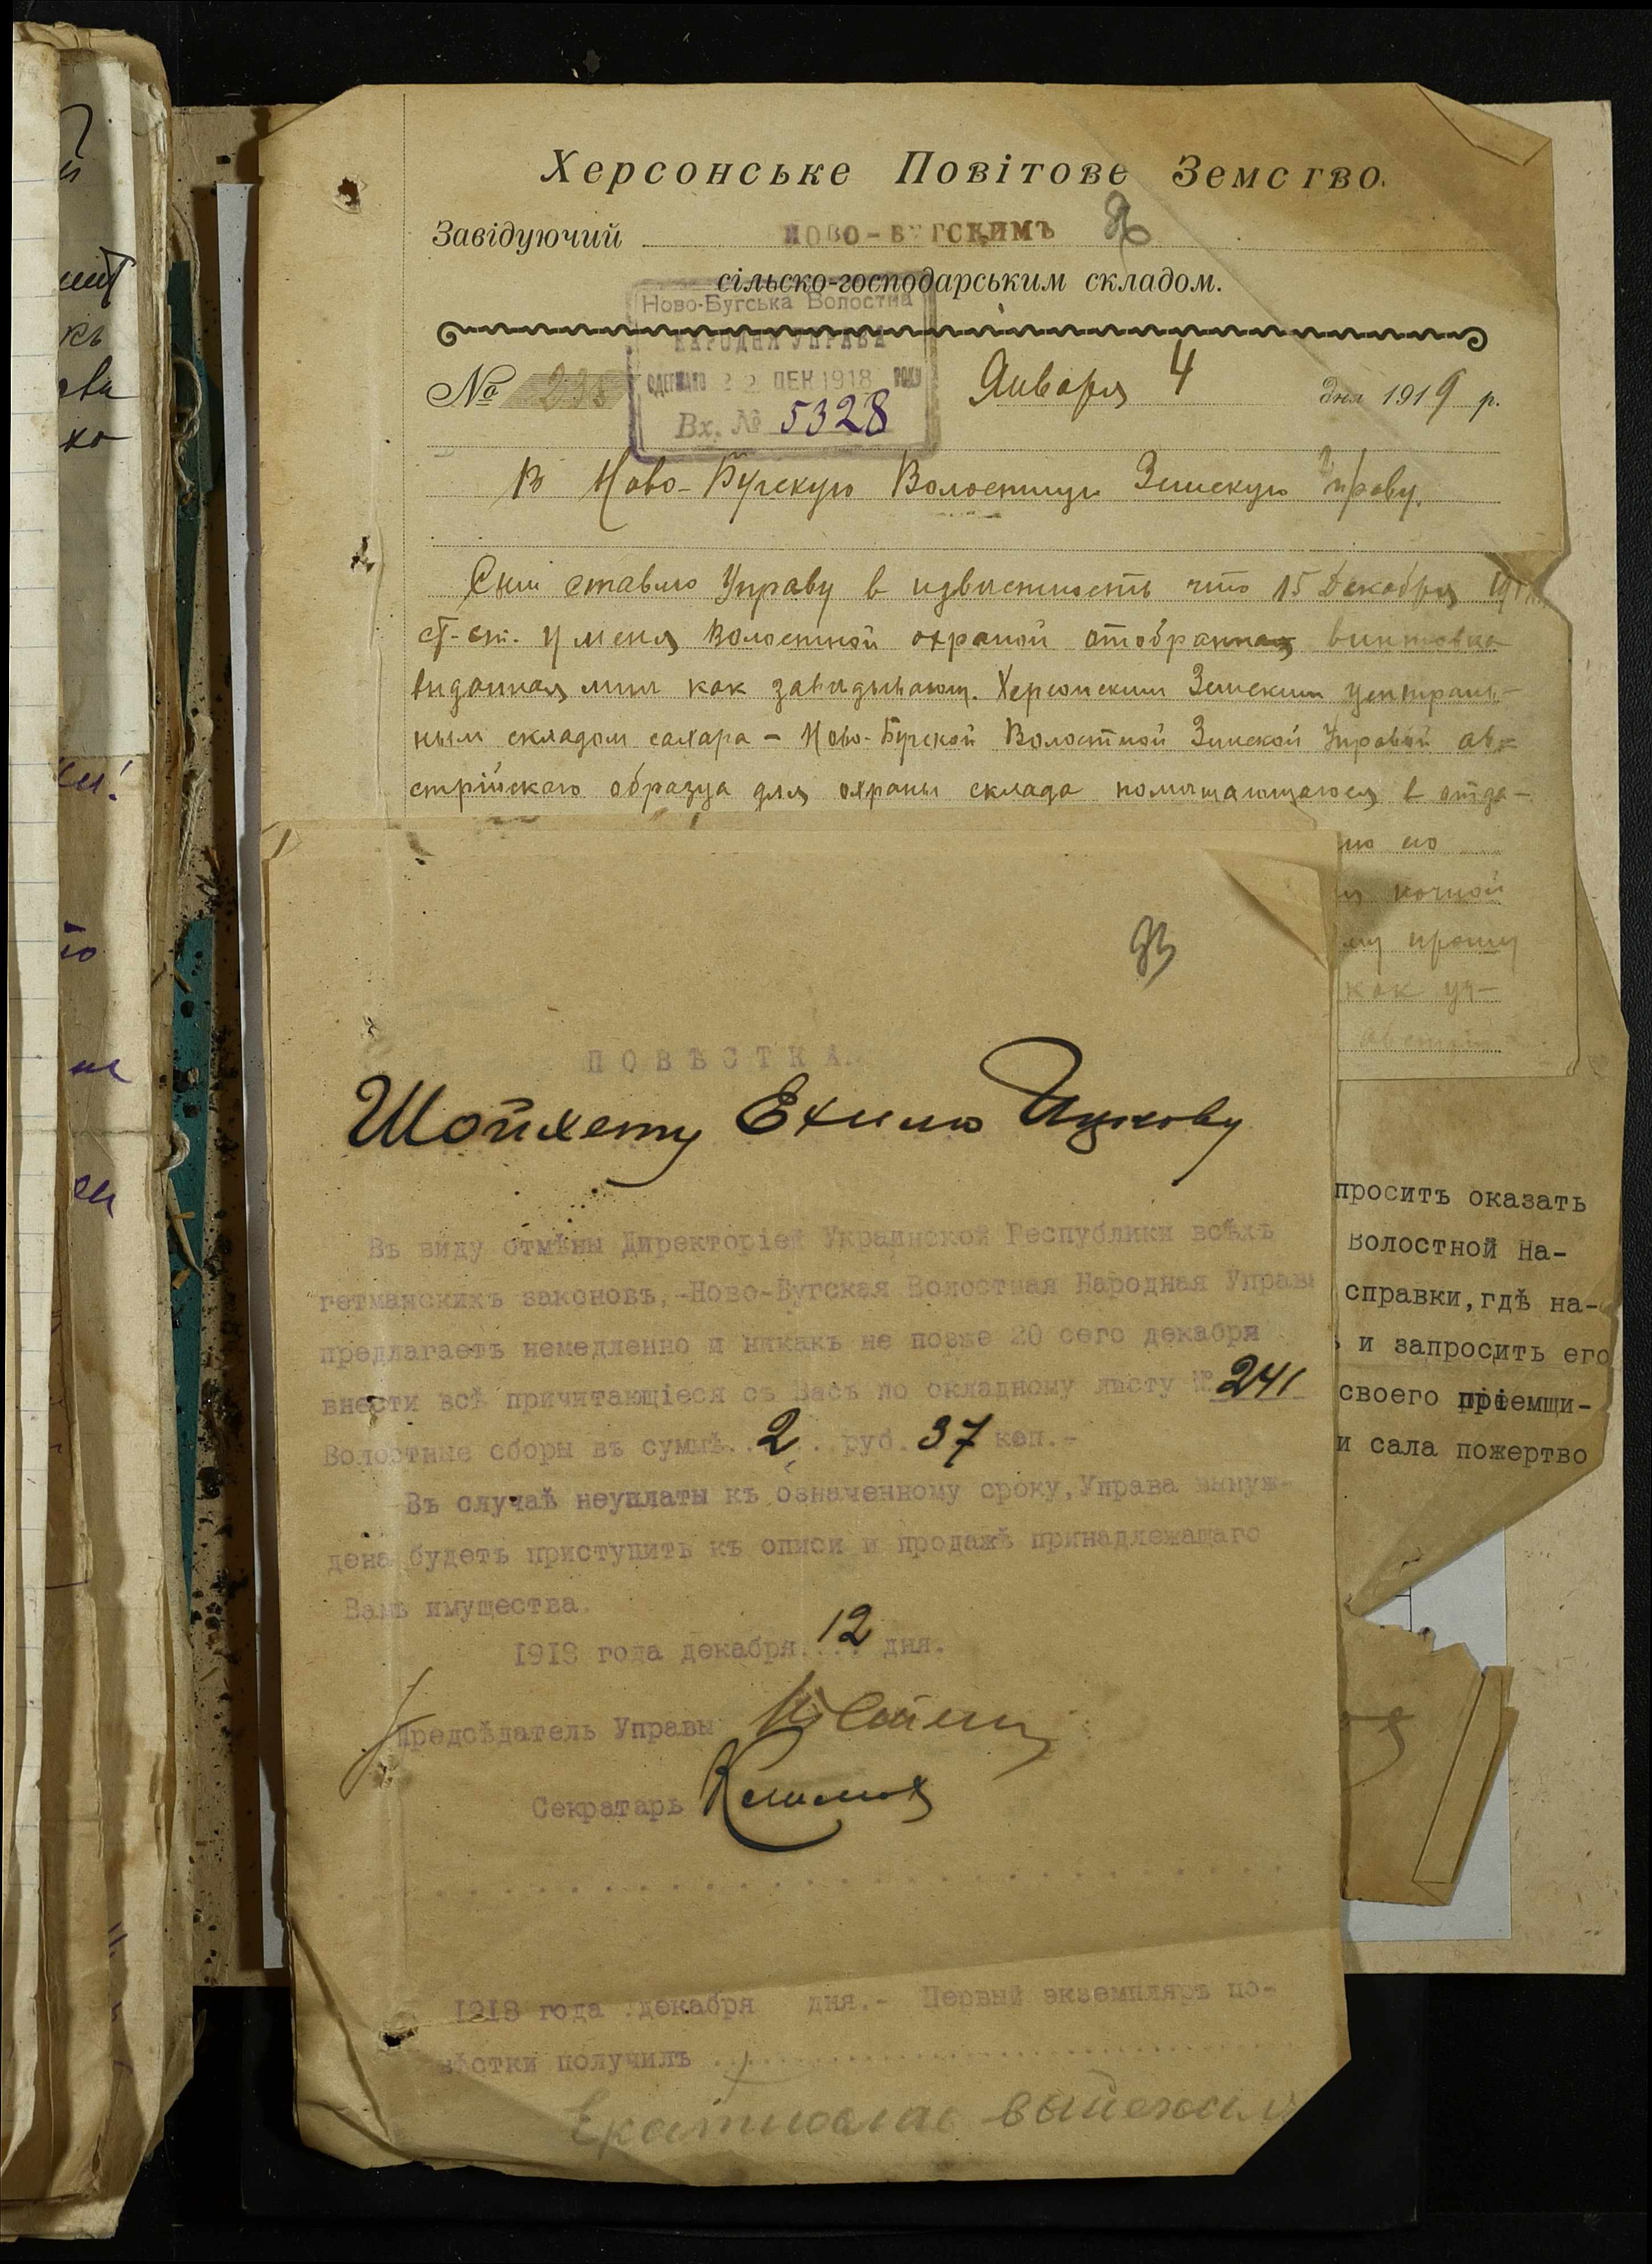 Херсонське Повітове Земство.
Завідуючий НОВО-БУГСКИМЪ
сільско-господарським складом.
Ново-Бугська Волостна
НАРОДНА УПРАВА
ОДЕРЖАНО 22 ДЕК 1918 РОКУ
Вх. № 5328
№ 238
Января 4 дня 1919 р.
В Ново-Бугскую Волостную Земскую Управу.
Сим ставлю Управу в известность что 15 Декабря
ст. ст. у меня Волостной охраной отобранная винтовка
выданная мне как заведывающ. Херсонским Земским централь-
ным складом сахара - Ново-Бугской Волостной Земской Управой ав-
стрійскаго образца для охраны склада помещающагося в отде-
ночной
му прошу
как уч-
93
ПОВѢСТКА.
Шойхету Ехилю Ицкову
Въ виду отмѣны Директоріей Украинской Республики всѣхъ
гетманскихъ законовъ,-Ново-Бугская Волостная Народная Управа
предлагаетъ немедленно и никакъ не позже 20 сего декабря
внести всѣ причитающіеся съ Васъ по окладному листу № 241
Волостные сборы въ суммѣ..2...руб. 37 коп.-
Въ случаѣ неуплаты къ означенному сроку, Управа вынуж-
дена будетъ приступить къ описи и продажѣ принадлежащаго
Вамъ имущества.
1918 года декабря.12.. дня.
Предсѣдатель Управы
Секратарь
1918 года декабря дня.- Первый экземпляръ по-
вѣстки получилъ
выехал
проситъ оказать
Волостной На-
справки, гдѣ на-
и запросить его
своего пріемщи-
и сала пожертво